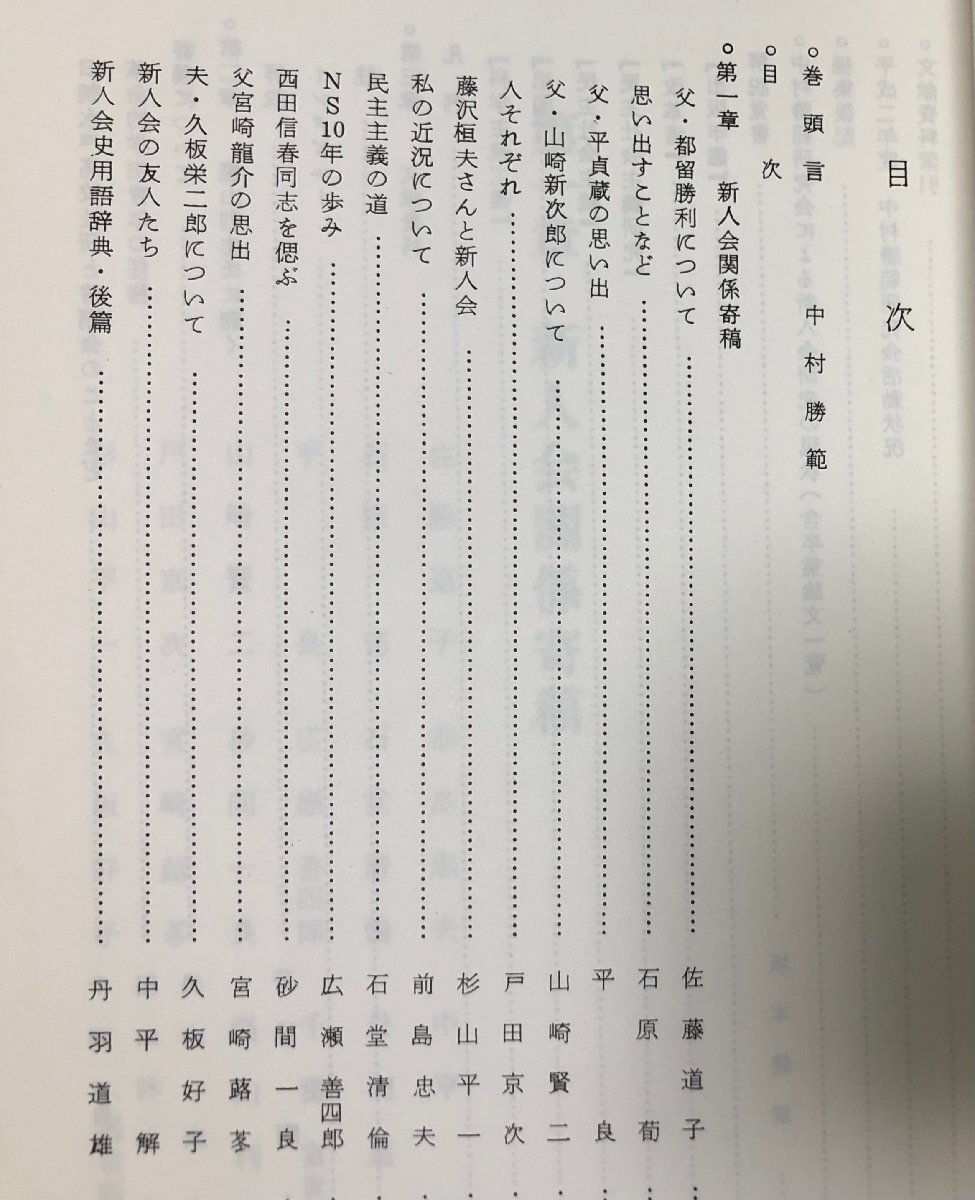 目　次
○巻頭言　中村勝範
○目次
○第一章　新人会関係寄稿
父・都留勝利について……佐藤道子…
思い出すことなど……石原荀…
父・平貞蔵の思い出……平良…
父・山崎新次郎について……山崎賢二…
人それぞれ……戸田京次…
藤沢桓夫さんと新人会……杉山平一…
私の近況について……前島忠夫…
民主主義の道……石堂清倫…
NS10年の歩み……広瀬善四郎…
西田信春同志を偲ぶ……砂間一良…
父宮崎龍介の思出……宮崎蕗苳
夫・久板栄二郎について……久板好子
新人会の友人たち……中平解
新人会史用語辞典・後篇……丹羽道雄